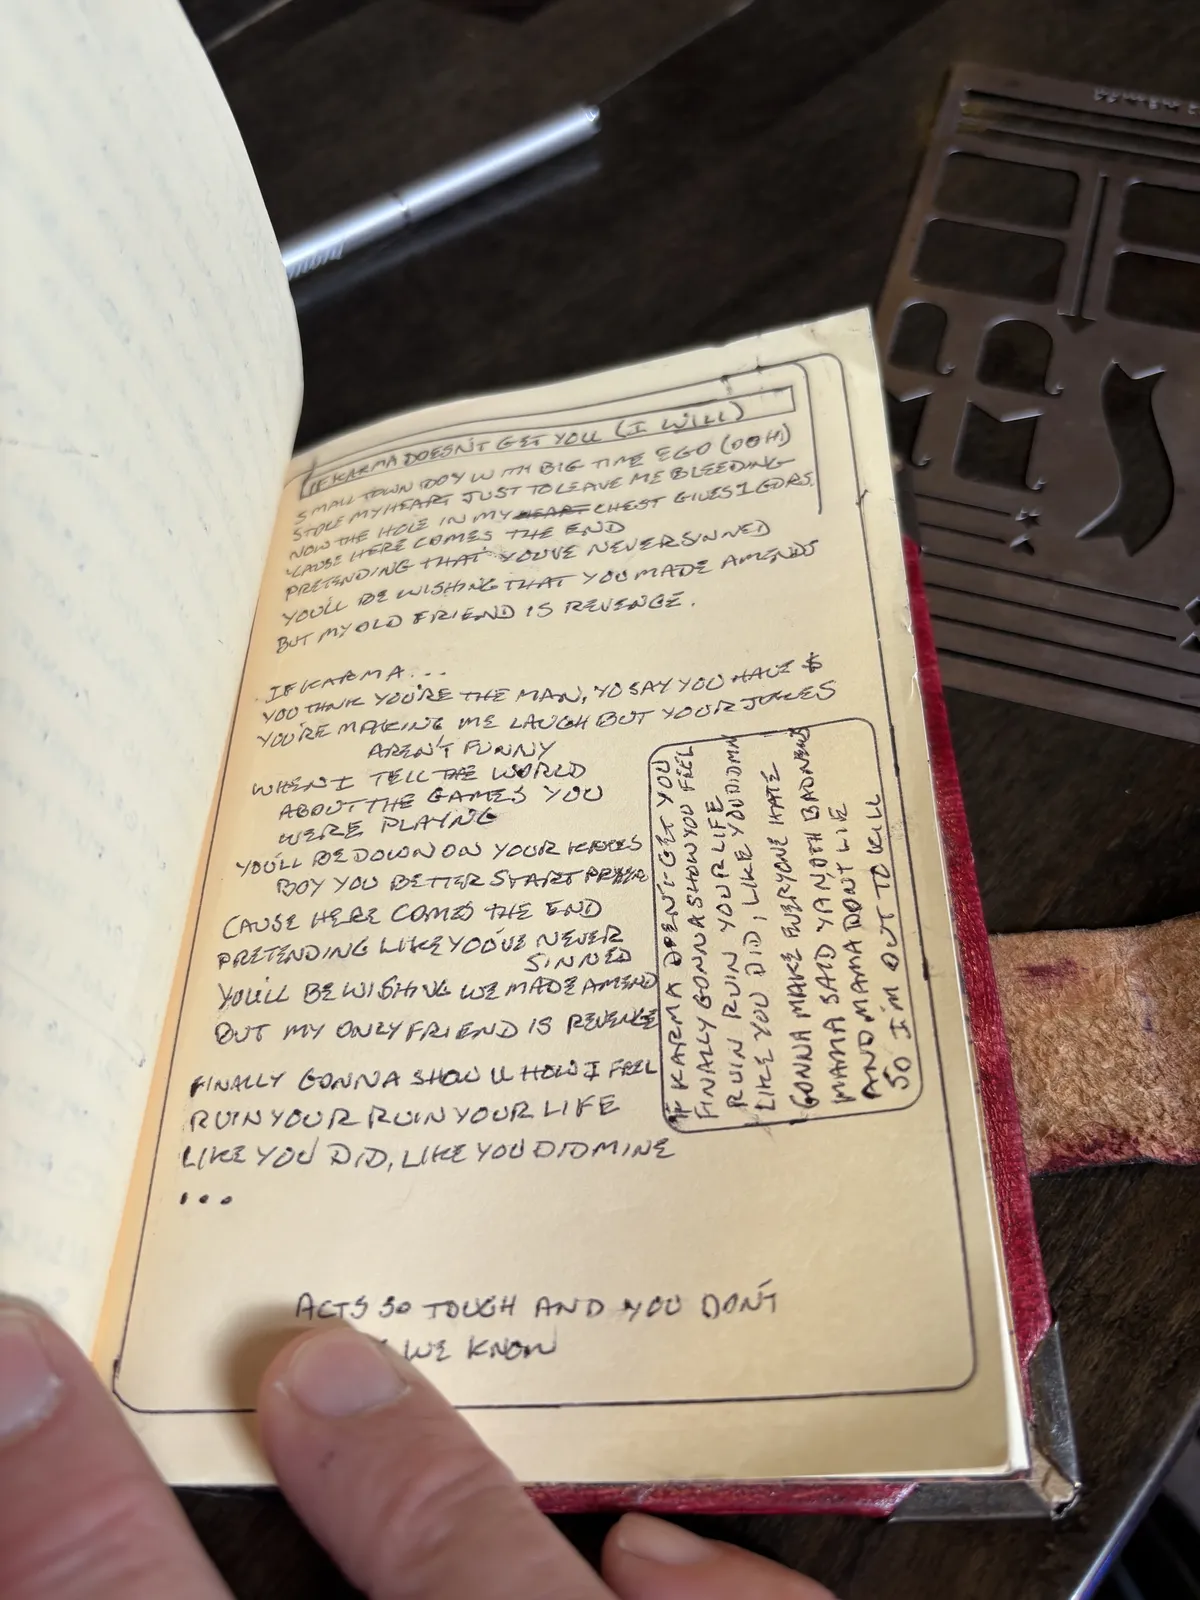 IF KARMA DOESN'T GET YOU (I WILL)
SMALL TOWN BOY WITH BIG TIME EGO (OOH)
STOLE MY HEART JUST TO LEAVE ME BLEEDING
NOW THE HOLE IN MY HEART CHEST GIVES
'CAUSE HERE COMES THE END
PRETENDING THAT YOU'VE NEVER SINNED
YOU'LL BE WISHING THAT YOU MADE AMENDS
BUT MY OLD FRIEND IS REVENGE.
IF KARMA...
YOU THINK YOU'RE THE MAN, YO SAY YOU HAVE $
YOU'RE MAKING ME LAUGH BUT YOUR JOKES
AREN'T FUNNY
WHEN I TELL THE WORLD
ABOUT THE GAMES YOU
WERE PLAYNG
YOU'LL BE DOWN ON YOUR KNEES
BOY YOU BETTER START
CAUSE HERE COMES THE END
PRETENDING LIKE YOU'VE NEVER
SINNED
YOU'LL BE WISHING WE MADE AMEND
BUT MY ONLY FRIEND IS REVENGE
FINALLY GONNA SHOW U HOW I FEEL
RUIN YOUR RUIN YOUR LIFE
LIKE YOU DID, LIKE YOU DID MINE
...
IF KARMA GET YOU
FINALLY GONNA SHOW YOU FEEL
RUIN RUIN YOUR LIFE
LIKE YOU DID, LIKE YOU DID
GONNA MAKE EVERYONE HATE
MAMA SAID YA BADNEWS
AND MAMA DON'T LIE
SO I'M OUT TO KILL
ACTS SO TOUGH AND YOU DON'T
WE KNOW